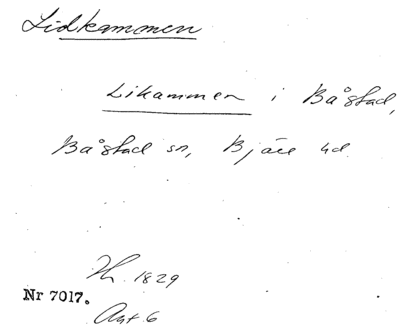 Lidkammen
Likammen i Båstad,
Båstad sn, Bjäre hd
1829
Nr 7017.
Akt 6